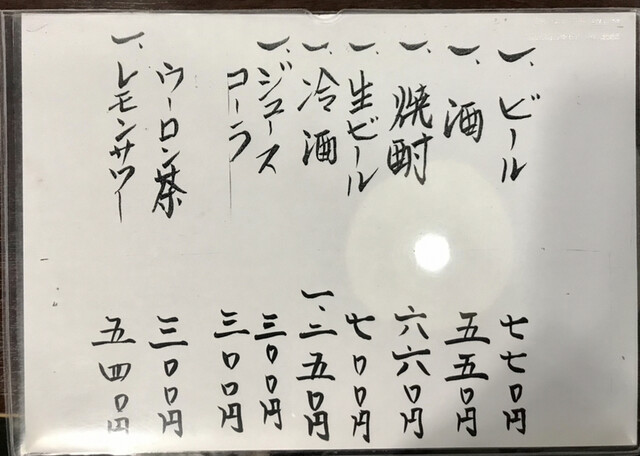 一、ビール 七七〇円
一、酒 五五〇円
一、焼酎 六六〇円
一、生ビール 七〇〇円
一、冷酒 一、二五〇円
一、ジュース 三〇〇円
コーラ 三〇〇円
ウーロン茶 三〇〇円
一、レモンサワー 五四〇円